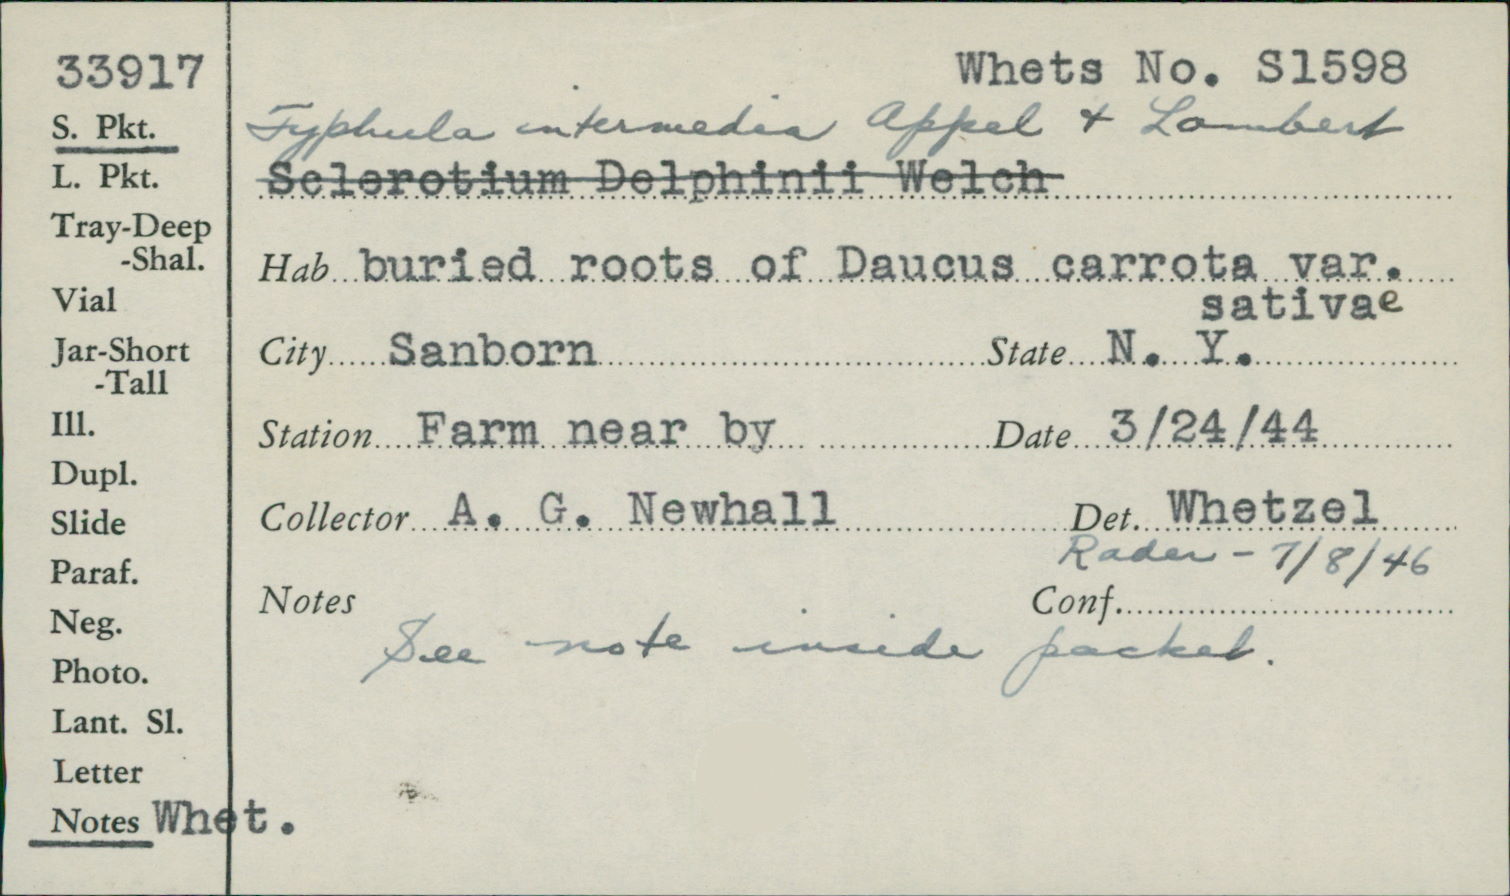 33917
Whets No. S1598
S. Pkt.
Typhula intermedia Appel + Lambert
Sclerotium Delphinii Welch
L. Pkt.
Tray-Deep
-Shal.
Hab buried roots of Daucus carrota var.
sativae
Vial
Jar-Short
-Tall
City Sanborn State N. Y.
Ill.
Station Farm near by Date 3/24/44
Dupl.
Slide
Collector A. G. Newhall Det. Whetzel
Rader - 7/8/46
Paraf.
Notes Conf.
Neg.
See note inside packet.
Photo.
Lant. Sl.
Letter
Notes Whet.